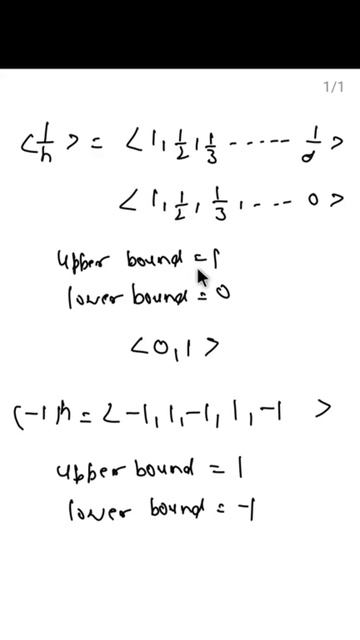 1/1
<1/n> = <1, 1/2, 1/3 ...... 1/∞>
<1, 1/2, 1/3, ... 0>
upper bound = 1
lower bound = 0
<0, 1>
(-1)n = < -1, 1, -1, 1, -1 >
upper bound = 1
lower bound = -1